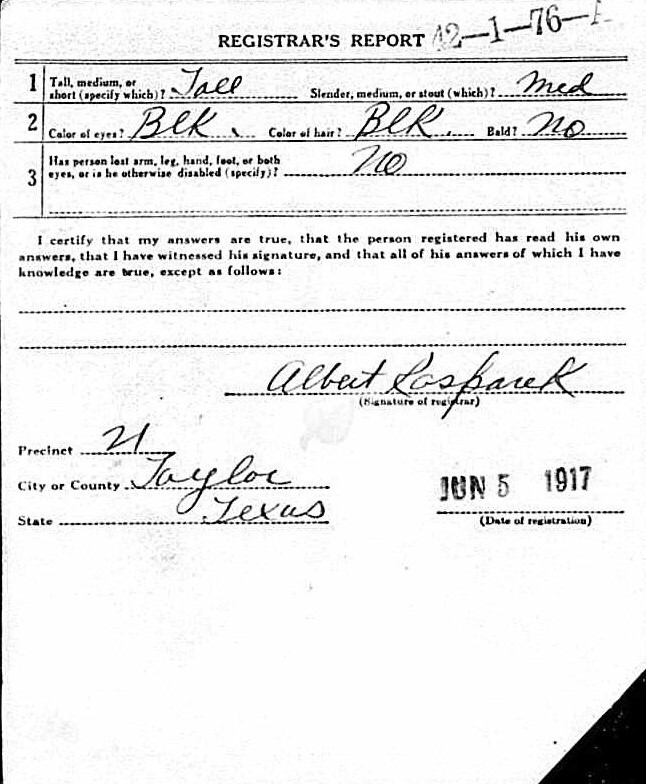 REGISTRAR'S REPORT 42-1-76-A
1 Tall, medium, or short (specify which)? Tall Slender, medium, or stout (which)? Med
2 Color of eyes? Blk. Color of hair? Blk. Bald? No
3 Has person lost arm, leg, hand, foot, or both
eyes, or is he otherwise disabled (specify)? No
I certify that my answers are true, that the person registered has read his own
answers, that I have witnessed his signature, and that all of his answers of which I have
knowledge are true, except as follows:
Albert
(Signature of registrar)
Precinct 21
City or County Taylor
JUN 5 1917
State Texas
(Date of registration)